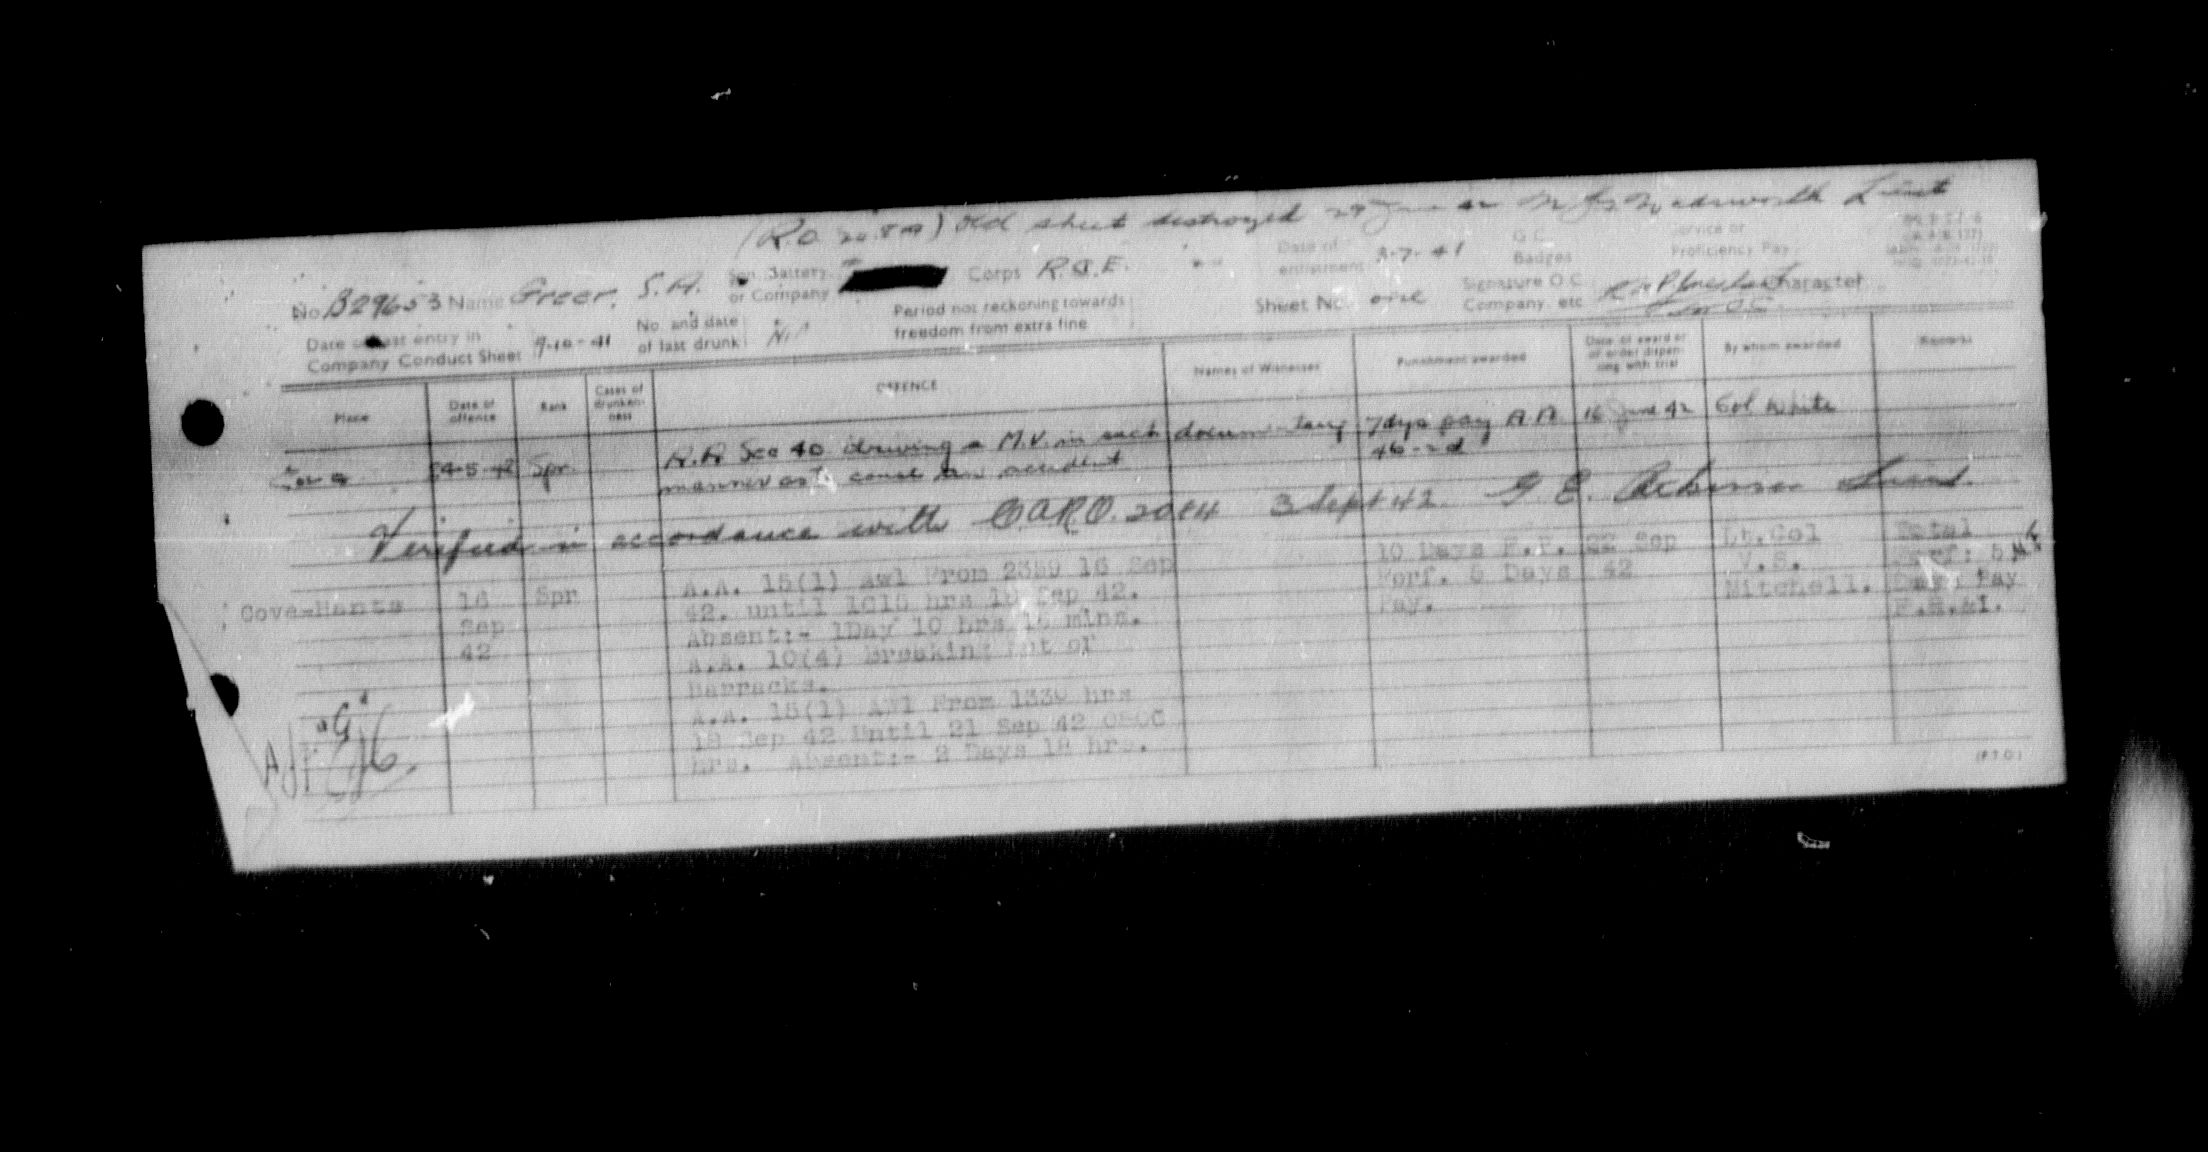 (R.O. ) Old sheet destroyed Wadsworth Lieut
No. B29653 Name Greer, S.A. Sqn. Battery or Company Corps R.C.E. Date of enlistment 3-7-41 G.C. Badges Service or Proficiency Pay
Date of last entry in Company Conduct Sheet 9-10-41 No. and date of last drunk Nil Period not reckoning towards freedom from extra fine Sheet No. one Signature O.C. Company, etc. Character
Place Date of offence Rank Cases of drunkenness OFFENCE Names of Witnesses Punishment awarded Date of award or of order dispensing with trial By whom awarded Remarks
Cove 24-5-42 Spr. A.A Sec 40 driving a M.V. in such documentary 7 dys pay A.A. 16 June 42 Col White
manner as to cause an accident 46-2d
Verified in accordance with C.A.R.O. 2084 3 Sept 42. G E. Lieut.
Cove-Hants 16 Sep 42 Spr A.A. 15(1) Awl From 2359 16 Sep 10 Days F.P. 22 Sep 42 Lt.Col Total
42. until 1015 hrs 18 Sep 42. Forf. 5 Days V.S. Forf: 5
Absent:- 1Day 10 hrs 16 mins. Pay. Mitchell. Days Pay
A.A. 10(4) Breaking out of P.R.&I.
Barracks.
A.A. 15(1) AWl From 1330 hrs
18 Sep 42 Until 21 Sep 42 0800
hrs. Absent:- 2 Days 18 hrs.
(P.T.O.)